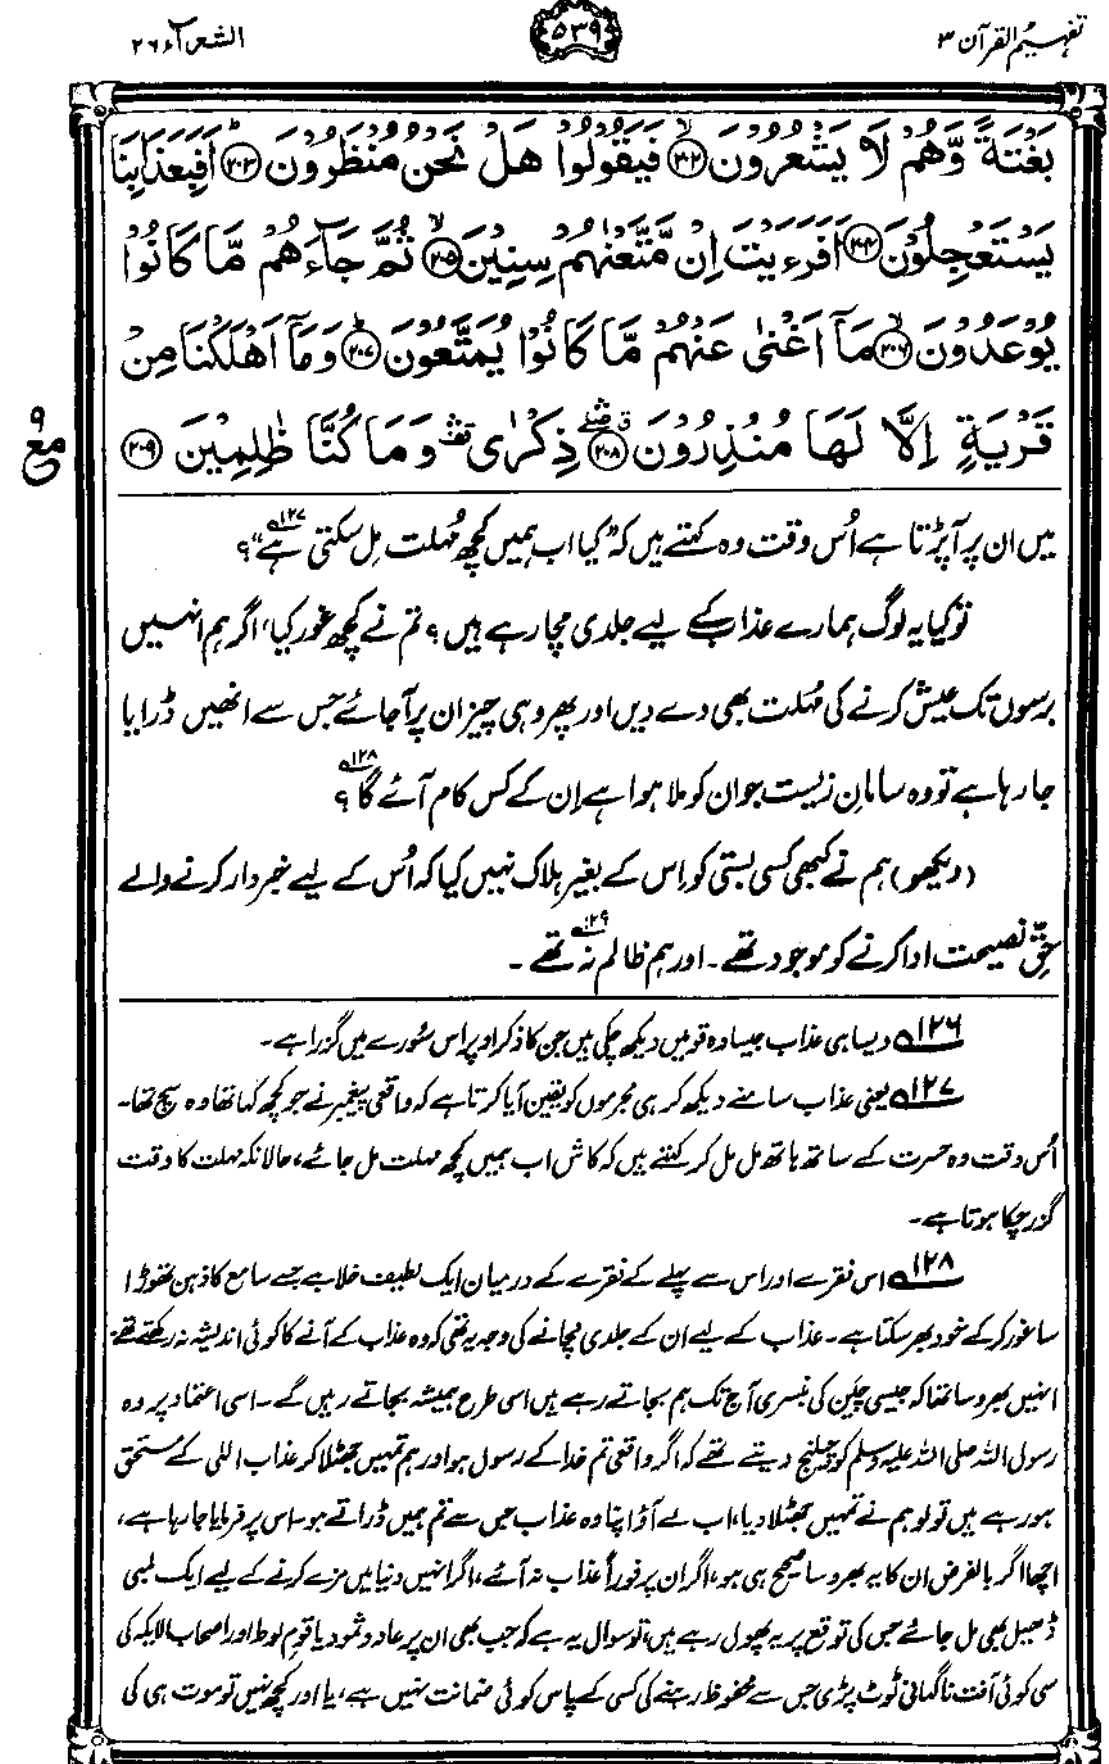 تفہیم القرآن ۳
۵۳۹
الشعرآء ۲۶
بَغْتَةً وَّهُمْ لَا يَشْعُرُوْنَ ﴿۲۰۲﴾ فَيَقُوْلُوْا هَلْ نَحْنُ مُنْظَرُوْنَ ﴿۲۰۳﴾ اَفَبِعَذَابِنَا
يَسْتَعْجِلُوْنَ ﴿۲۰۴﴾ اَفَرَءَيْتَ اِنْ مَّتَّعْنٰهُمْ سِنِيْنَ ﴿۲۰۵﴾ ثُمَّ جَآءَهُمْ مَّا كَانُوْا
يُوْعَدُوْنَ ﴿۲۰۶﴾ مَآ اَغْنٰى عَنْهُمْ مَّا كَانُوْا يُمَتَّعُوْنَ ﴿۲۰۷﴾ وَمَآ اَهْلَكْنَا مِنْ
قَرْيَةٍ اِلَّا لَهَا مُنْذِرُوْنَ ﴿۲۰۸﴾ ذِكْرٰى وَمَا كُنَّا ظٰلِمِيْنَ ﴿۲۰۹﴾
میں ان پر آ پڑتا ہے اُس وقت وہ کہتے ہیں کہ ”کیا اب ہمیں کچھ مُہلت مِل سکتی ہے“؟ ۱۲۷
تو کیا یہ لوگ ہمارے عذاب کے لیے جلدی مچا رہے ہیں؟ تم نے کچھ غور کیا، اگر ہم انہیں
برسوں تک عیش کرنے کی مُہلت بھی دے دیں اور پھر وہی چیز ان پر آ جائے جس سے انھیں ڈرایا
جا رہا ہے تو وہ سامانِ زیست جو ان کو ملا ہوا ہے اِن کے کس کام آئے گا؟ ۱۲۸
(دیکھو) ہم نے کبھی کسی بستی کو اِس کے بغیر ہلاک نہیں کیا کہ اُس کے لیے خبردار کرنے والے
حقِّ نصیحت ادا کرنے کو موجود تھے۔ اور ہم ظالم نہ تھے۔ ۱۲۹
۱۲۶ ویسا ہی عذاب جیسا وہ قومیں دیکھ چکی ہیں جن کا ذکر اوپر اس سُورے میں گزرا ہے۔
۱۲۷ یعنی عذاب سامنے دیکھ کر ہی مجرموں کو یقین آیا کرتا ہے کہ واقعی پیغمبر نے جو کچھ کہا تھا وہ سچ تھا۔
اُس وقت وہ حسرت کے ساتھ ہاتھ مل مل کر کہتے ہیں کہ کاش اب ہمیں کچھ مہلت مل جائے، حالانکہ مہلت کا وقت
گزر چکا ہوتا ہے۔
۱۲۸ اس فقرے اور اس سے پہلے کے فقرے کے درمیان ایک لطیف خلا ہے جسے سامع کا ذہن تھوڑا
سا غور کر کے خود بھر سکتا ہے۔ عذاب کے لیے ان کے جلدی مچانے کی وجہ یہ تھی کہ وہ عذاب کے آنے کا کوئی اندیشہ نہ رکھتے تھے۔
انہیں بھروسا تھا کہ جیسی چین کی بنسری آج تک ہم بجاتے رہے ہیں اسی طرح ہمیشہ بجاتے رہیں گے۔ اسی اعتماد پر وہ
رسول اللہ صلی اللہ علیہ وسلم کو چیلنج دیتے تھے کہ اگر واقعی تم خدا کے رسول ہو اور ہم تمہیں جھٹلا کر عذاب الٰہی کے مستحق
ہو رہے ہیں تو لو ہم نے تمہیں جھٹلا دیا، اب لے آؤ اپنا وہ عذاب جس سے تم ہمیں ڈراتے ہو۔ اس پر فرمایا جا رہا ہے،
اچھا اگر بالفرض ان کا یہ بھروسا صحیح ہی ہو، اگر ان پر فوراً عذاب نہ آئے، اگر انہیں دنیا میں مزے کرنے کے لیے ایک لمبی
ڈھیل بھی مل جائے جس کی توقع پر یہ پھول رہے ہیں، تو سوال یہ ہے کہ جب بھی ان پر عاد و ثمود یا قوم لوط اور اصحاب الایکہ کی
سی کوئی آفت ناگہانی ٹوٹ پڑی جس سے محفوظ رہنے کی کسی کے پاس کوئی ضمانت نہیں ہے، یا اور کچھ نہیں تو موت ہی کی